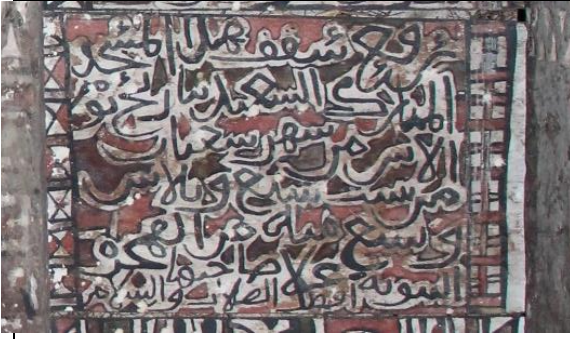 سقف هذا المسجد
المبارك السعيد بتاريخ يوم
الاثنين من شهر شعبان
من سنت سبع وثلاثين
وتسع مئة من الهجرة
النبوية على صاحبها افضل الصلاة والسلام